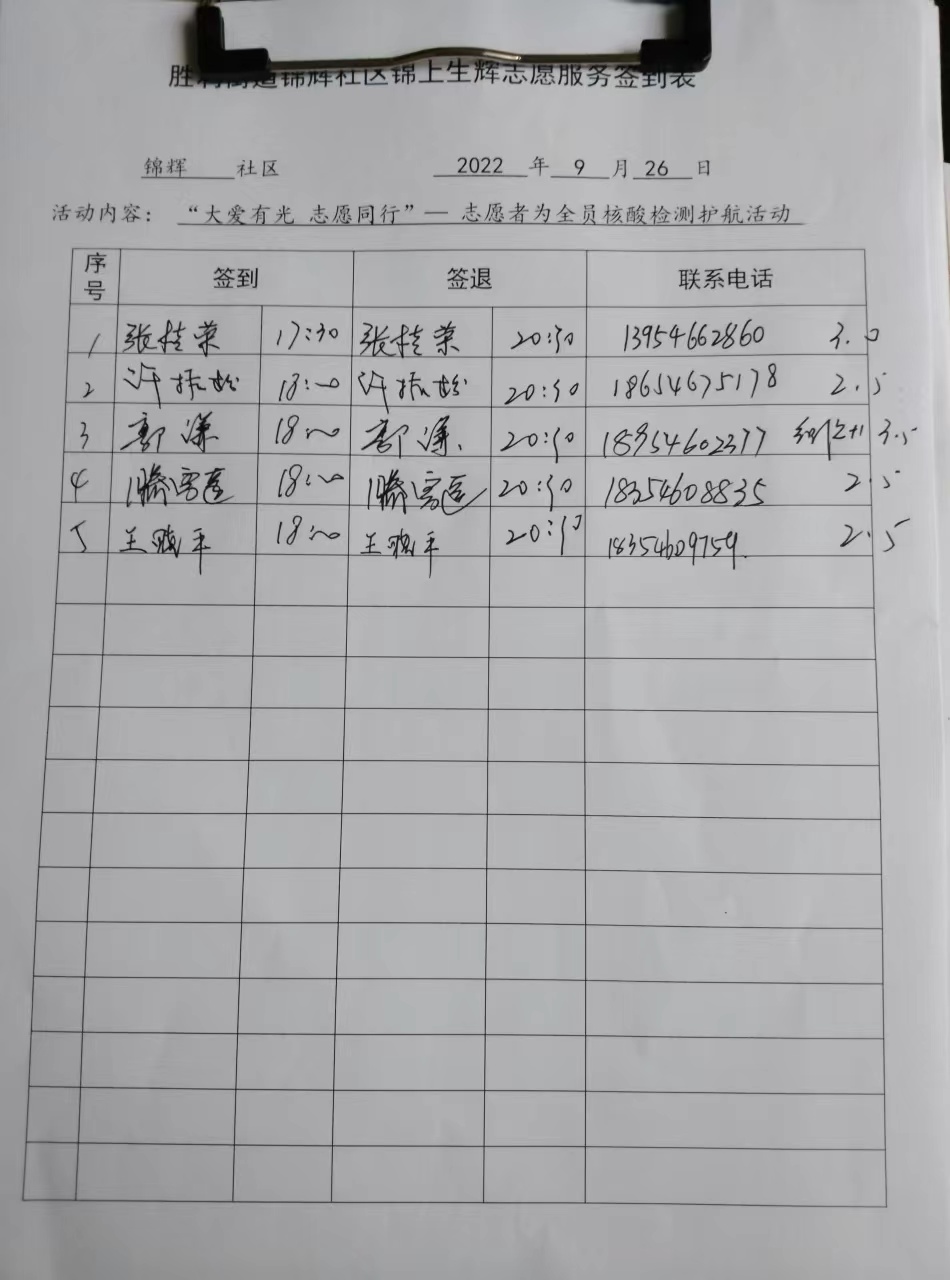 胜利街道锦辉社区锦上生辉志愿服务签到表
锦辉 社区 2022 年 9 月 26 日
活动内容： “大爱有光 志愿同行”— 志愿者为全员核酸检测护航活动
序号 签到 签退 联系电话
1 张桂荣 17:30 张桂荣 20:30 13954662860 3.0
2 许振龄 18:00 许振龄 20:30 18654675178 2.5
3 郭谦 18:00 郭谦 20:30 18954602377 3.5
4 滕 18:00 滕 20:30 18354608835 2.5
5 王晓平 18:00 王晓平 20:30 18354609759. 2.5